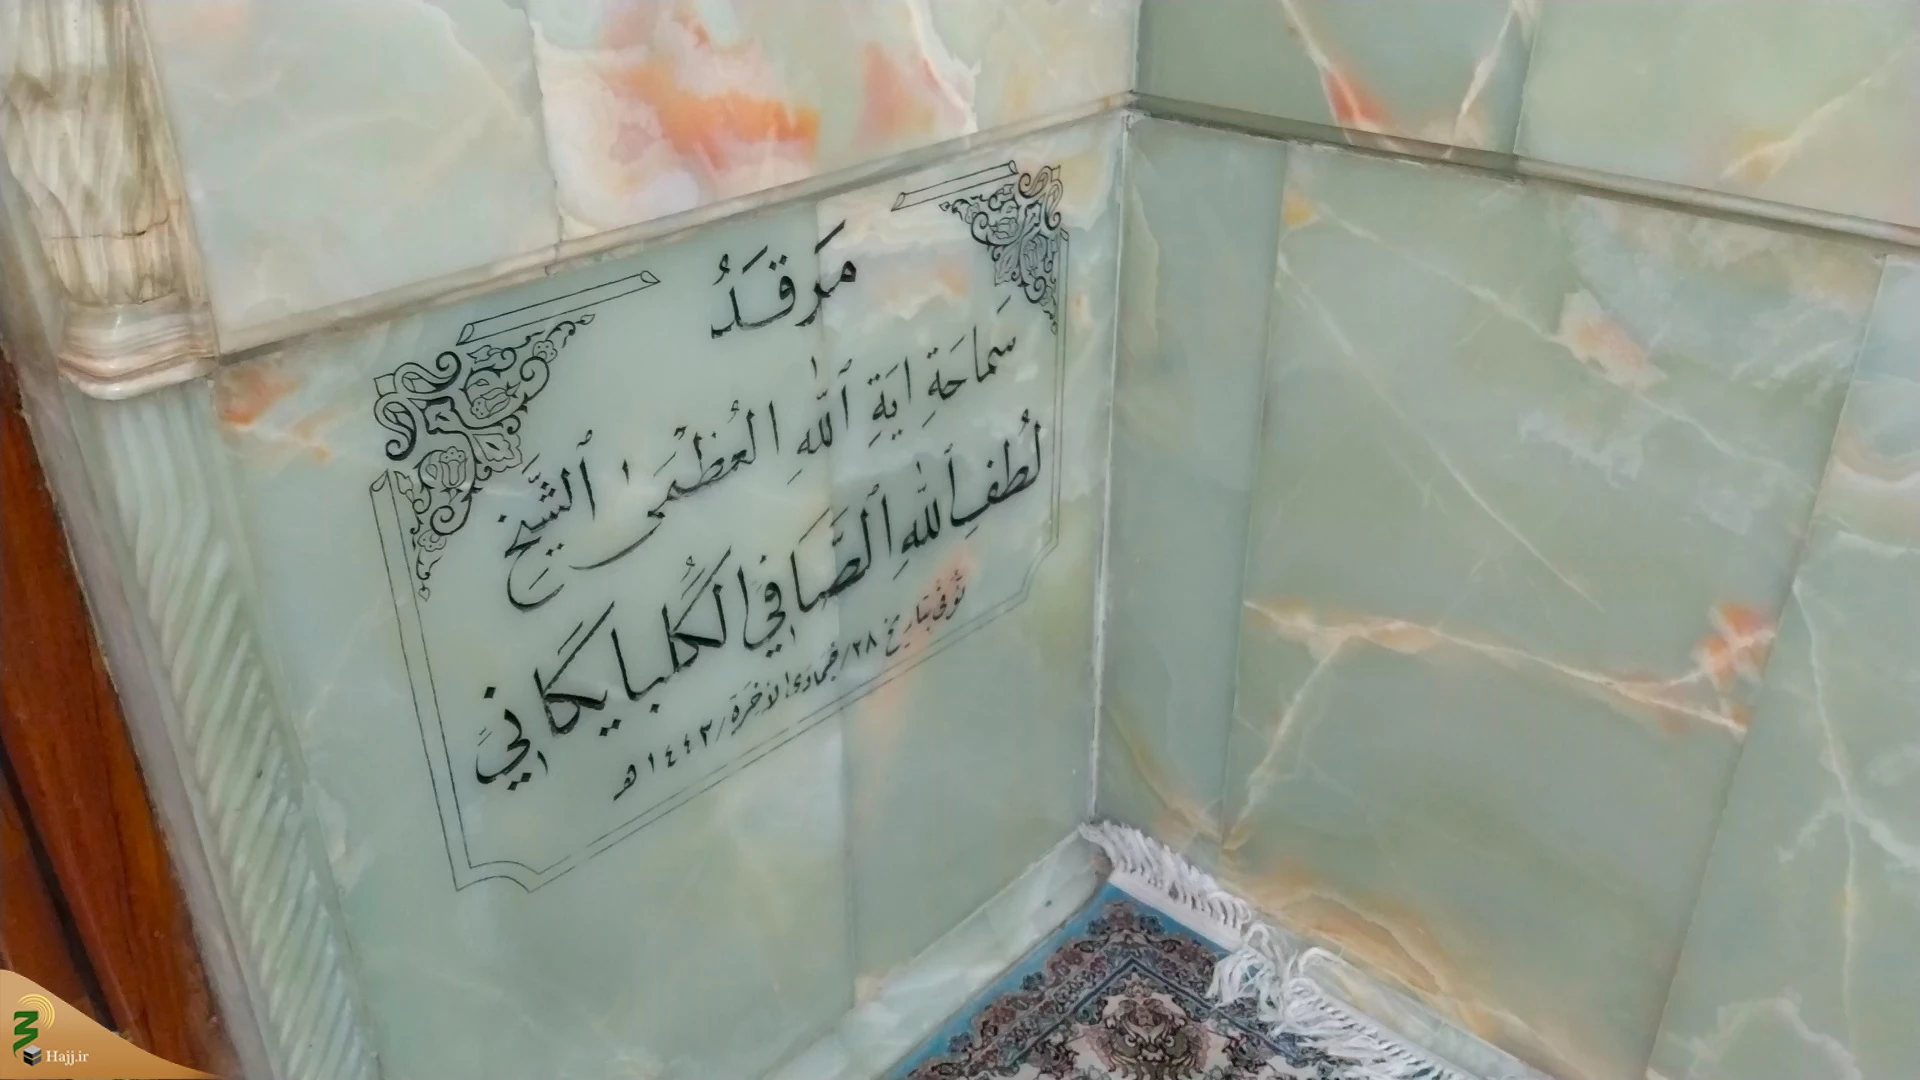 مَرقَدُ
سَماحَةِ ايَةِ ٱللّٰهِ العُظْمَىٰ ٱلشَّيخ
لُطفِ ٱللّٰهِ ٱلصَّافي الگُلبايگاني
تُوُفّيَ بتاريخ ٢٨/جُمادى الآخرة/١٤٤٣ هـ
Hajj.ir